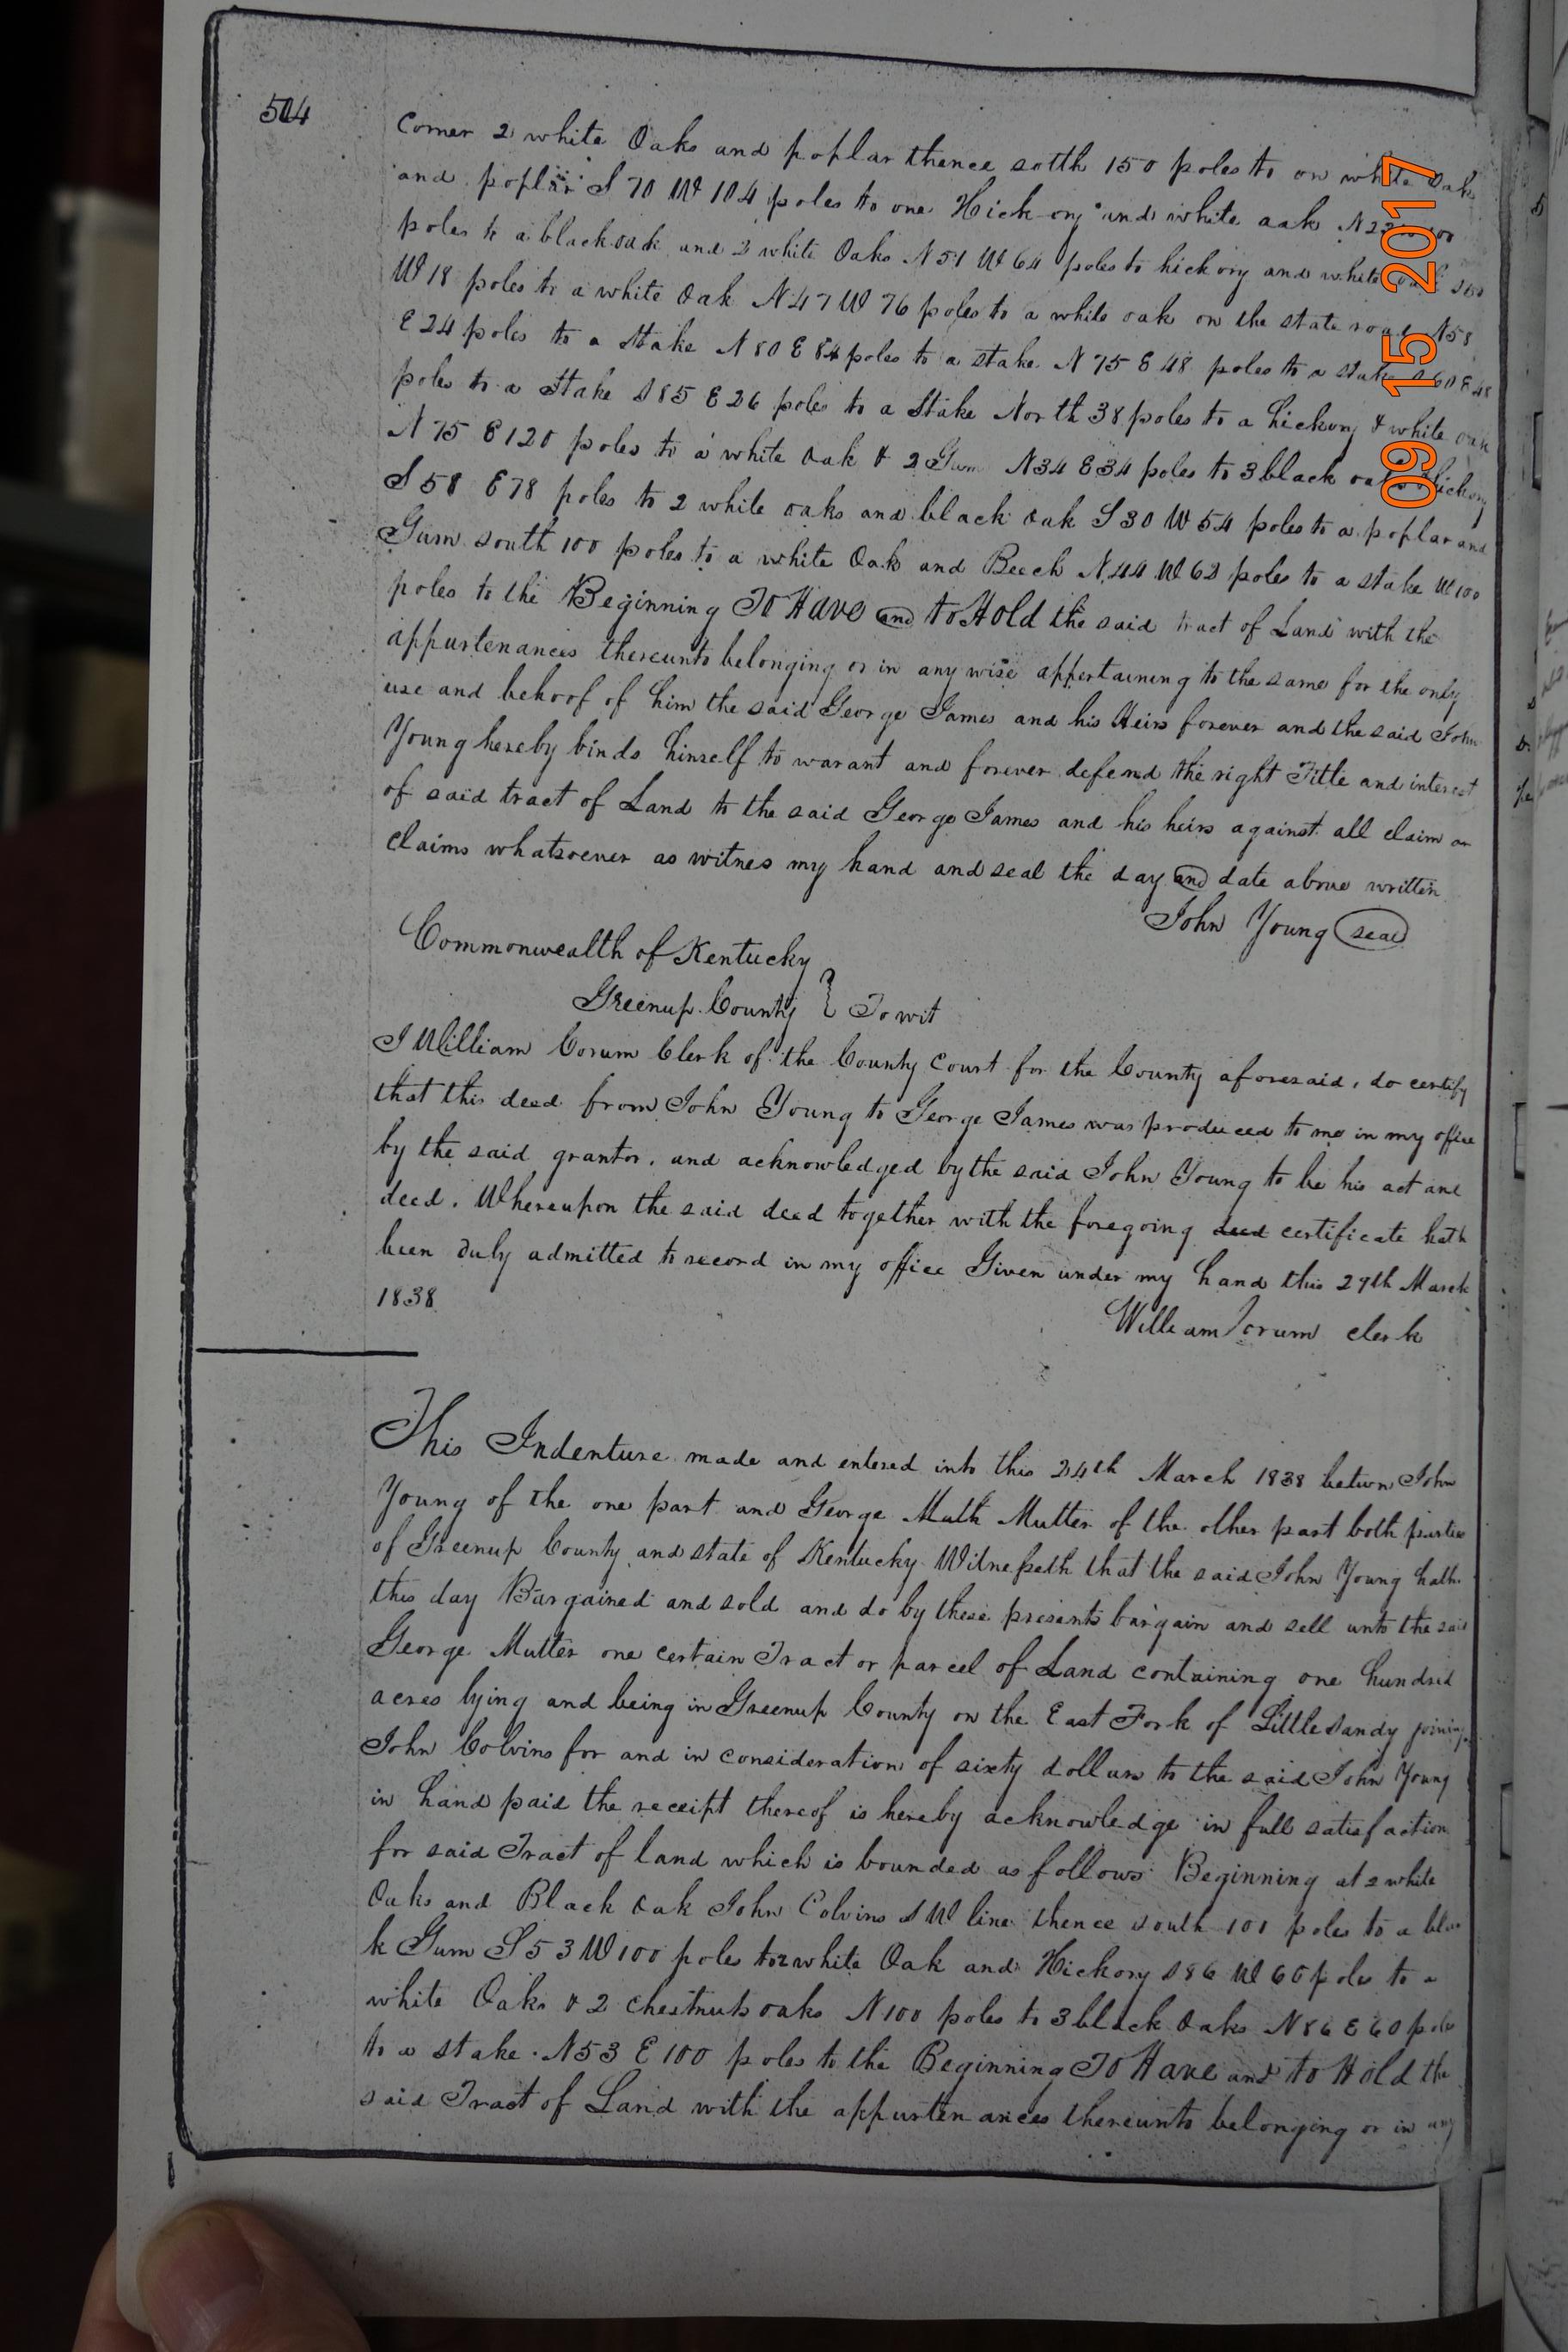 504
Corner 2 white Oaks and poplar thence sotth 150 poles to on white Oak
and poplar S 70 W 104 poles to one Hickory and white aak N 22
poles to a black oak and 2 white Oaks N 51 W 64 poles to hickory and white
W 18 poles to a white Oak N 47 W 76 poles to a white oak on the state road N 58
E 24 poles to a Stake N 80 E 84 poles to a stake N 75 E 48 poles to a stake S 60 E 48
poles to a Stake S 85 E 26 poles to a Stake North 38 poles to a hickory & white oak
N 75 E 120 poles to a white Oak & 2 Gum N 34 E 34 poles to 3 black oaks Hickory
S 58 E 78 poles to 2 white oaks and black oak S 30 W 54 poles to a poplar and
Gum south 100 poles to a white Oak and Beech N 44 W 62 poles to a stake W 100
poles to the Beginning To Have and to Hold the said tract of Land with the
appurtenances thereunto belonging or in any wise appertaining to the same for the only
use and behoof of him the said George James and his Heirs forever and the said John
Young hereby binds himself to warant and forever defend the right Title and interest
of said tract of Land to the said George James and his heirs against all claim or
claims whatsoever as witness my hand and seal the day and date above written
John Young seal
Commonwealth of Kentucky
Greenup County } To wit
I William Corum Clerk of the County Court for the County aforesaid, do certify
that this deed from John Young to George James was produced to me in my office
by the said grantor, and acknowledged by the said John Young to be his act and
deed. Whereupon the said deed together with the foregoing deed certificate hath
been duly admitted to record in my office Given under my hand this 29th March
1838
William Corum clerk
This Indenture made and entered into this 24th March 1838 betwn John
Young of the one part and George Mutt Mutter of the other part both parties
of Greenup County and state of Kentucky Witnesseth that the said John Young hath
this day Bargained and sold and do by these presents bargain and sell unto the said
George Mutter one certain Tract or parcel of Land containing one hundred
acres lying and being in Greenup County on the East Fork of Little Sandy joining
John Colvins for and in consideration of sixty dollars to the said John Young
in hand paid the receipt thereof is hereby acknowledge in full satisfaction
for said Tract of land which is bounded as follows Beginning at 2 white
Oaks and Black oak John Colvins S W line thence south 101 poles to a blac
k Gum S 53 W 100 poles to 2 white Oak and Hickory S 86 W 60 poles to a
white Oaks & 2 chestnuts oaks N 100 poles to 3 black Oaks N 86 E 60 poles
to a stake N 53 E 100 poles to the Beginning To Have and to Hold the
said Tract of Land with the appurtenances thereunto belonging or in any
09 15 2017